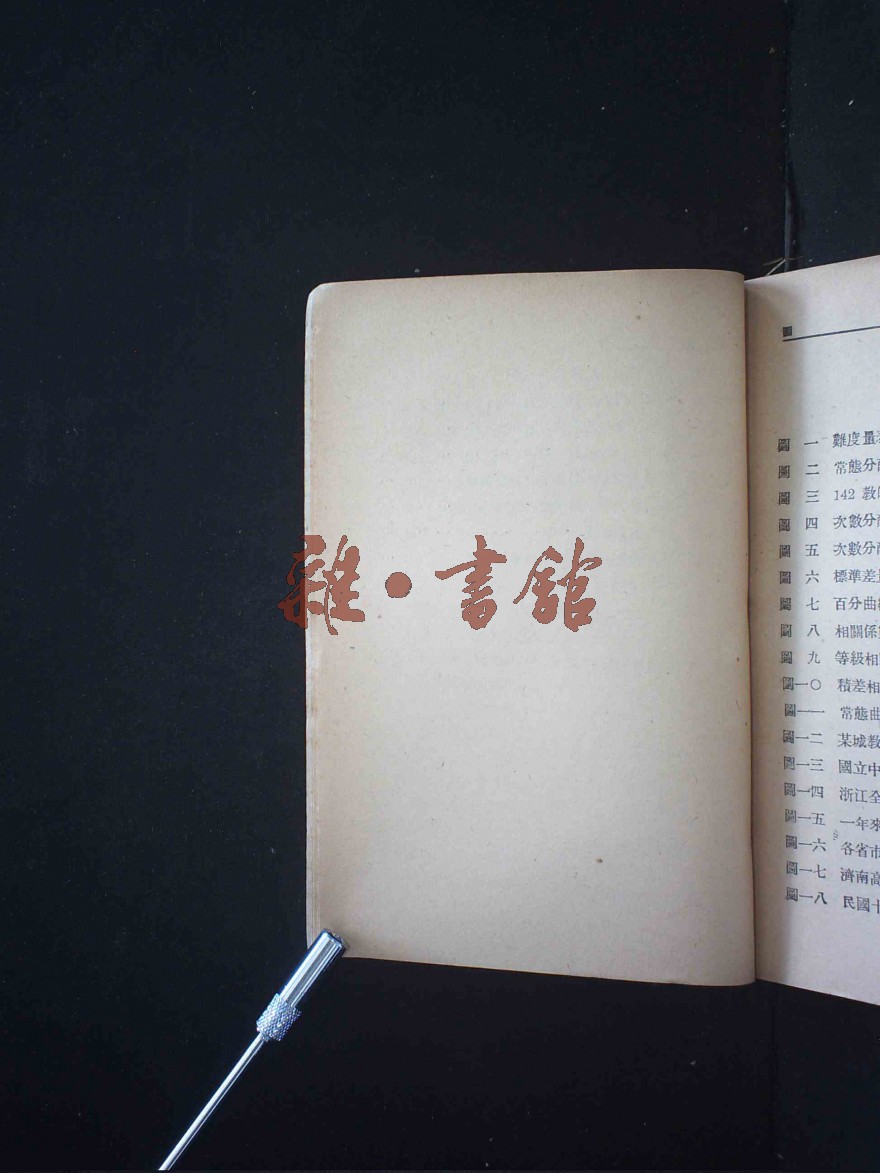 雜·書館
圖
圖一 難度量
圖二 常態分
圖三 142 教
圖四 次數分
圖五 次數分
圖六 標準差
圖七 百分曲
圖八 相關係
圖九 等級相
圖一〇 積差相
圖一一 常態曲
圖一二 某城教
圖一三 國立中
圖一四 浙江全
圖一五 一年來
圖一六 各省市
圖一七 濟南高
圖一八 民國十